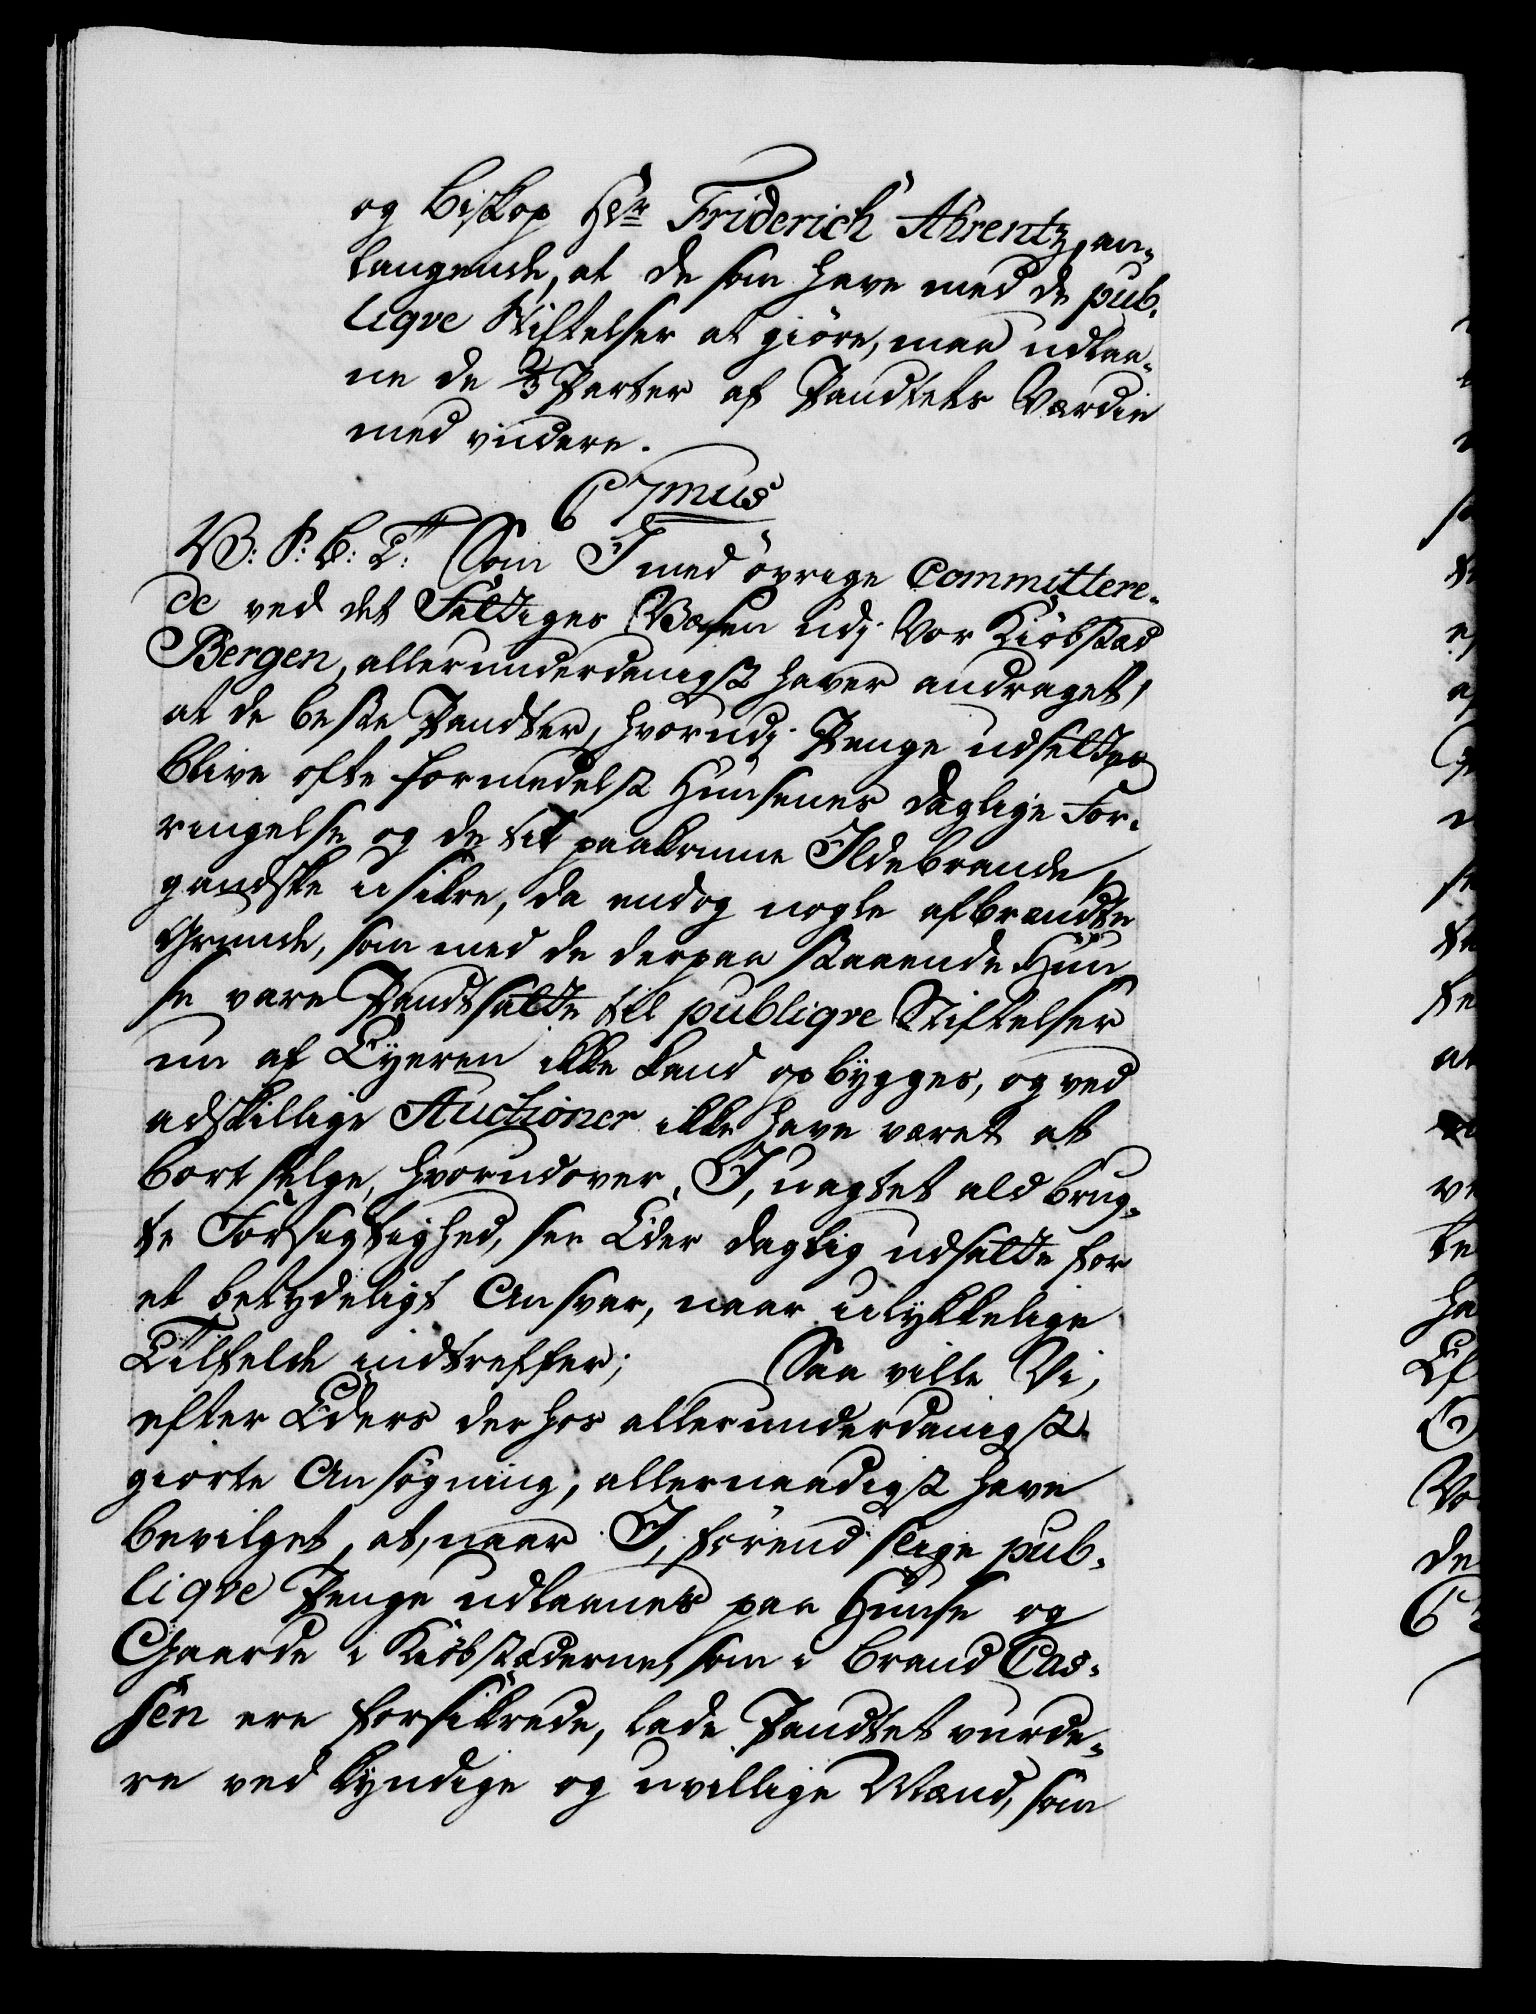 og Biskop Hr Friderich Ahrentz, an-
langende, at de som have med de pub-
liqve Stiftelser at giöre, maa udlaa-
ne de 2/3 Parter af Pandtets Værdie
med videre.
C 7mus
V: S: B: T: Som I med övrige Committere-
de ved det Fattiges Væsen udj Vor Kiöbstæd
Bergen, allerunderdanigst haver andraget,
at de beste Pandter, hvorudj Penge udsettes
blive ofte formedelst Huusenes daglige For-
ringelse og de tit paakomne Ildebrande,
gandske usikre, da endog nogle afbrændte
Grunde, som med de derpaa staaende Huu-
se vare Pandtsatte til publiqve Stiftelser
nu af Eyeren ikke kand opbygges, og ved
adskillige Auctioner ikke have været at
bortselge, hvorudover, I, uagtet ald brug-
te Forsigtighed, see Eder daglig udsatte for
et betydeligt Ansvar, naar ulykkelige
Tilfelde indtreffer; Saa ville Vi,
efter Eders derhos allerunderdanigst
giorte Ansögning, allernaadigst have
bevilget, at, naar I, förend slige pub-
liqve Penge udlaanes paa Huuse og
Gaarde i Kiöbstæderne, som i Brand Cas-
sen ere forsikrede, lade Pandtet vurde-
re ved kyndige og uvillige Mænd, som